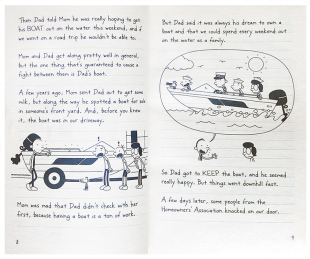 Then Dad told Mom he was really hoping to get
his BOAT out on the water this weekend, and if
we went on a road trip he wouldn't be able to.
Mom and Dad get along pretty well in general,
but the one thing that's guaranteed to cause a
fight between them is Dad's boat.
A few years ago, Mom sent Dad out to get some
milk, but along the way he spotted a boat for sale
in someone's front yard. And, before you knew
it, the boat was in our driveway.
Mom was mad that Dad didn't check with her
first, because having a boat is a ton of work.
But Dad said it was always his dream to own a
boat and that we could spend every weekend out
on the water as a family.
So Dad got to KEEP the boat, and he seemed
really happy. But things went downhill fast.
A few days later, some people from the
Homeowners' Association knocked on our door.